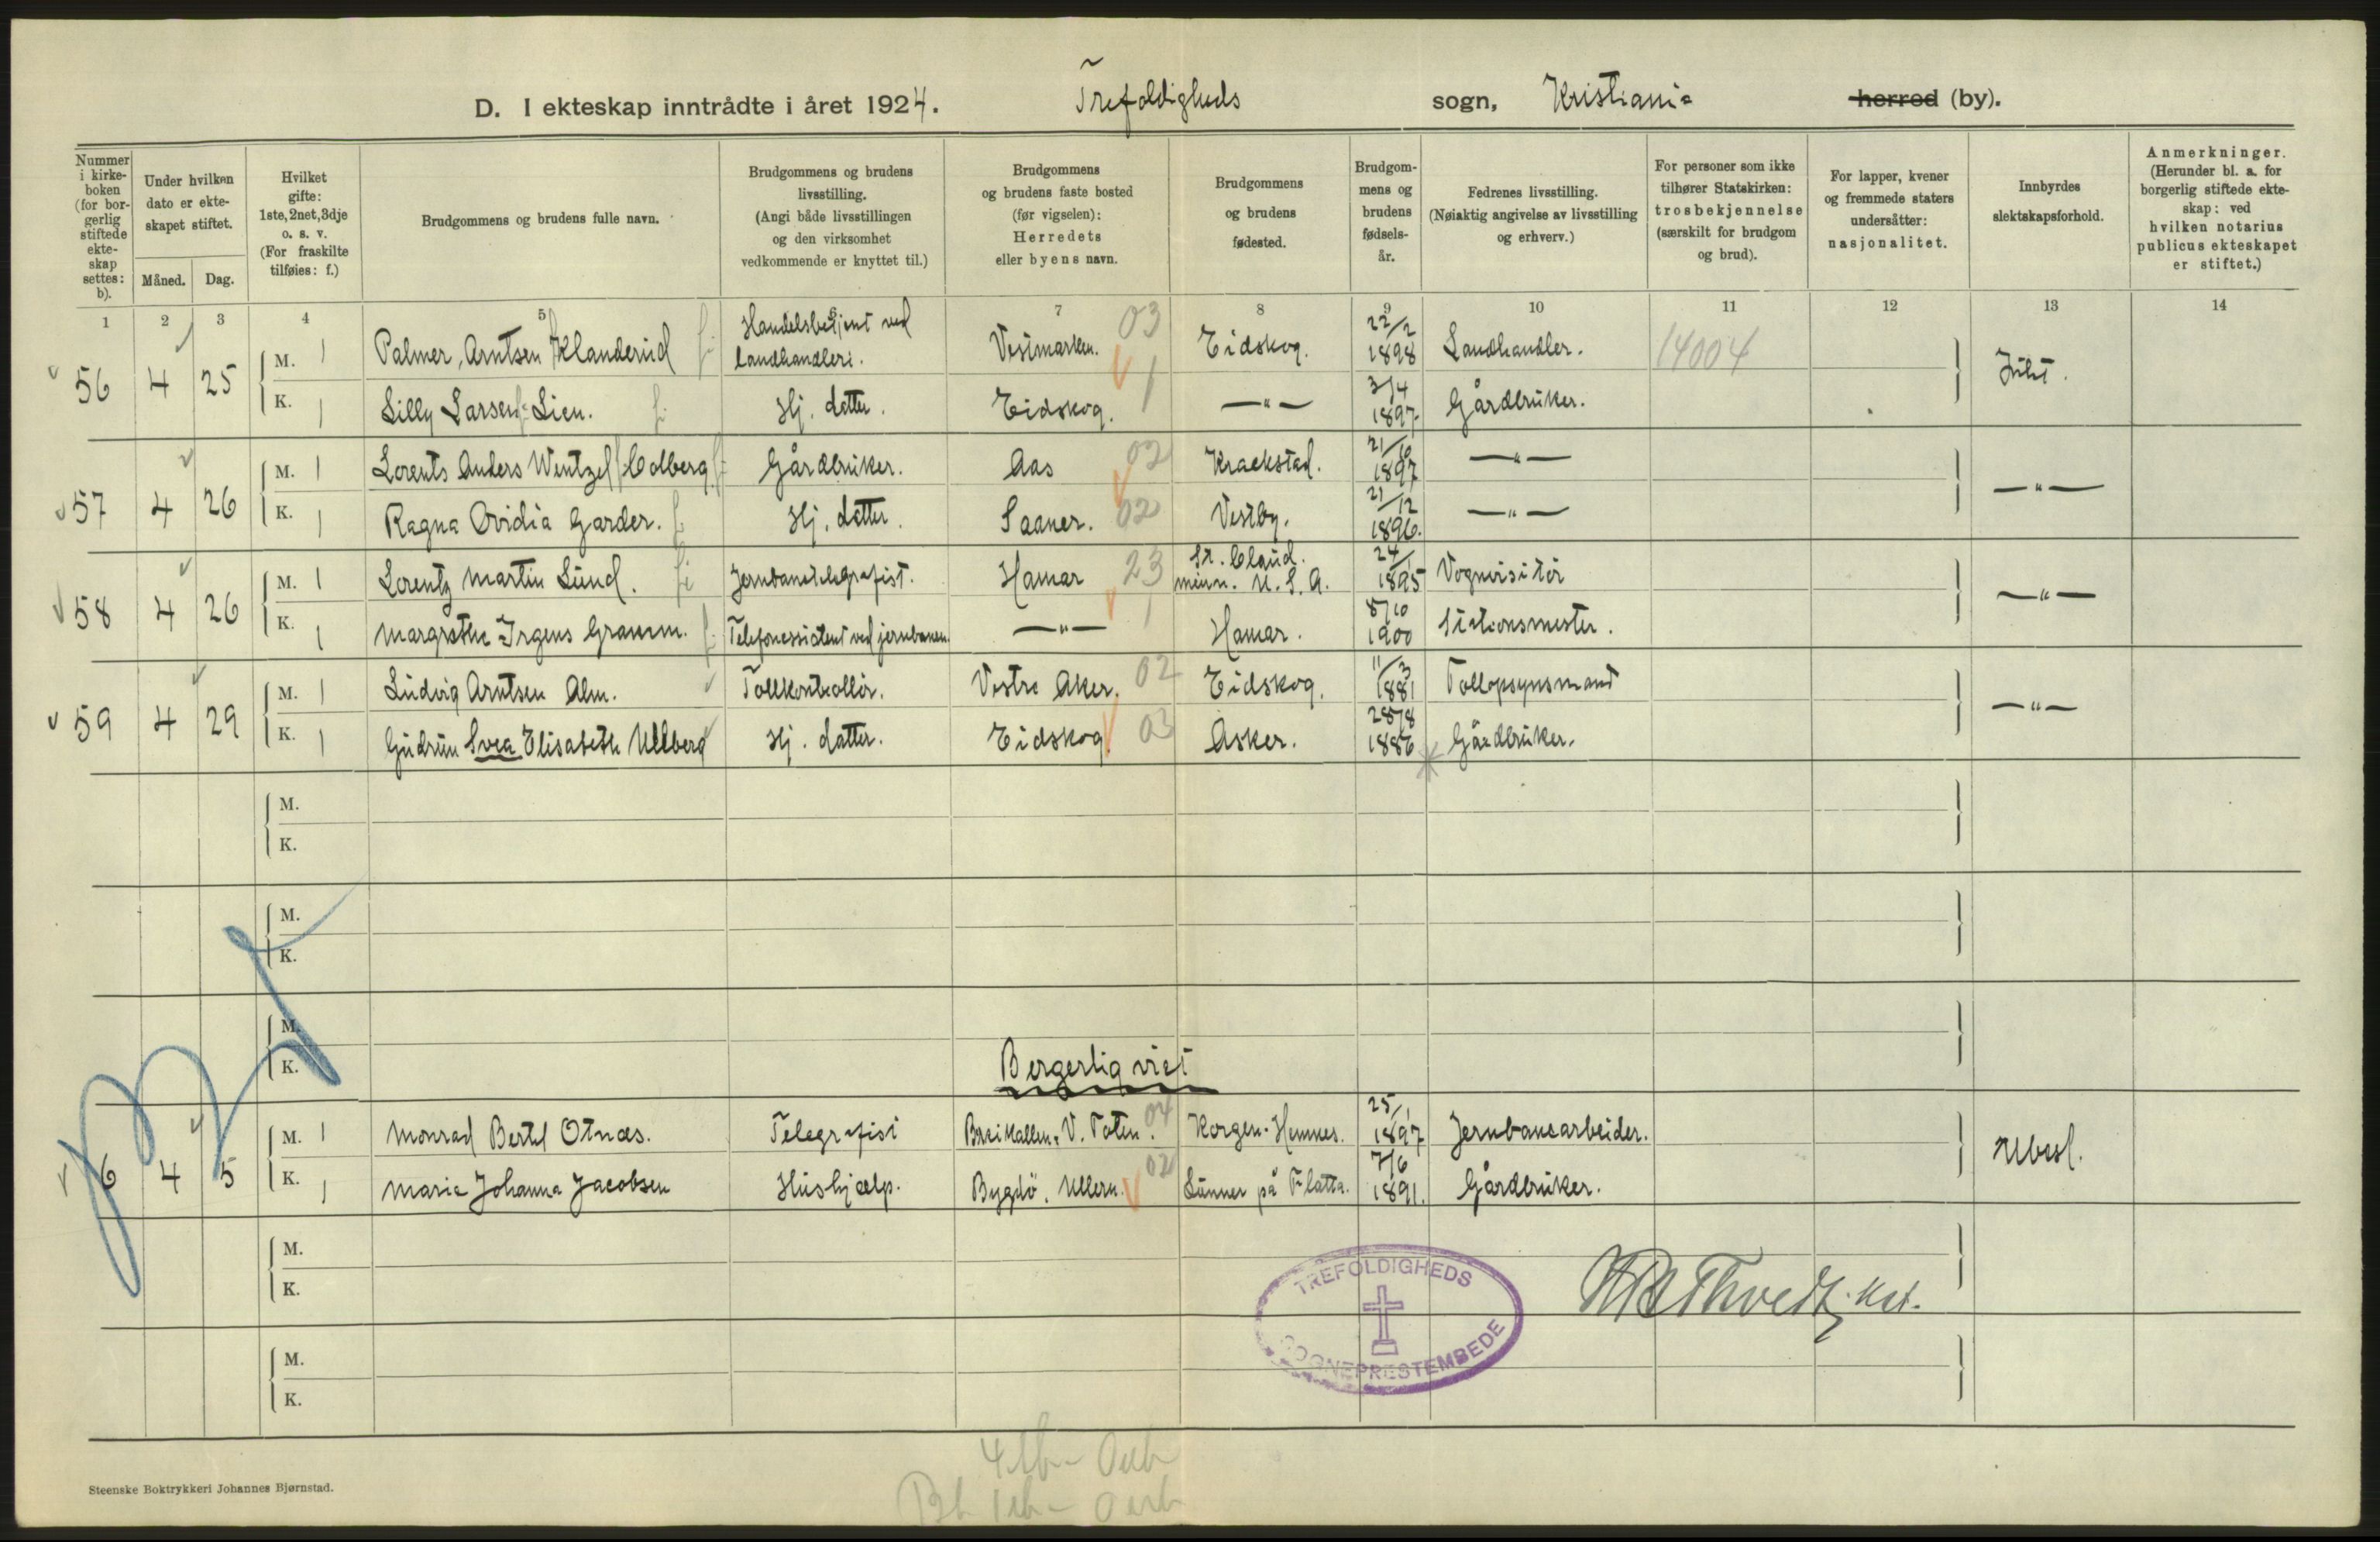 D. I ekteskap inntrådte i året 1924. Trefoldigheds sogn, Kristiania herred (by).
Nummer i kirkeboken (for borgerlig stiftede ekteskap settes: b).
Under hvilken dato er ekteskapet stiftet.
Måned. Dag.
Hvilket gifte: 1ste, 2net, 3dje o. s. v. (For fraskilte tilføies: f.)
Brudgommens og brudens fulle navn.
Brudgommens og brudens livsstilling. (Angi både livsstillingen og den virksomhet vedkommende er knyttet til.)
Brudgommens og brudens faste bosted (før vigselen): Herredets eller byens navn.
Brudgommens og brudens fødested.
Brudgommens og brudens fødselsår.
Fedrenes livsstilling. (Nøiaktig angivelse av livsstilling og erhverv.)
For personer som ikke tilhører Statskirken: trosbekjennelse (særskilt for brudgom og brud).
For lapper, kvener og fremmede staters undersåtter: nasjonalitet.
Innbyrdes slektskapsforhold.
Anmerkninger. (Herunder bl. a. for borgerlig stiftede ekteskap: ved hvilken notarius publicus ekteskapet er stiftet.)
1 2 3 4 5 6 7 8 9 10 11 12 13 14
56 4 25 M. 1 Palmer Arntsen Klanderud Handelsbetjent ved landhandleri. Vestmarken. 03 Eidskog. 22/2 1898 Landhandler. 14004
K. 1 Lilly Larsen Lien. Hj. datter. Eidskog. 1 —"— 3/4 1897 Gårdbruker.
57 4 26 M. 1 Lorents Anders Wentzel Colberg Gårdbruker. Aas 02 Kraekstad. 21/10 1897 —"— —"—
K. 1 Ragna Ovidia Garder. Hj. datter. Saaner. 02 Vestby. 21/12 1896. —"—
58 4 26 M. 1 Lorentz Martin Lund. Jernbanetelegrafist. Hamar 23 St. Claud. minn. U.S.A. 24/1 1895 Vognvisitør —"—
K. 1 Margrethe Irgens Gramm. ved jernbanen —"— 1 Hamar. 8/10 1900 Stationsmester.
59 4 29 M. 1 Ludvig Arntsen Alm. Tollkontrollør. Vestre Aker. 02 Eidskog. 11/3 1881 Tollopsynsmand —"—
K. 1 Gudrun Svea Elisabeth Ullberg Hj. datter. Eidskog 03 Asker. 28/8 1886 Gårdbruker.
M.
K.
M.
K.
M.
K.
Bergerlig viet
6 4 5 M. 1 Monrad Bertel Otnæs. Telegrafist V. Toten. 04 Korgen. Hemnes. 25/1 1897 Jernbanearbeider. Ubesl.
K. 1 Marie Johanna Jacobsen Hushjælp. Bygdö. Ullern. 02 Lunner på 7/6 1891. Gårdbruker.
M.
K.
M.
K.
TREFOLDIGHEDS
SOGNEPRESTEMBEDE
Steenske Boktrykkeri Johannes Bjørnstad.